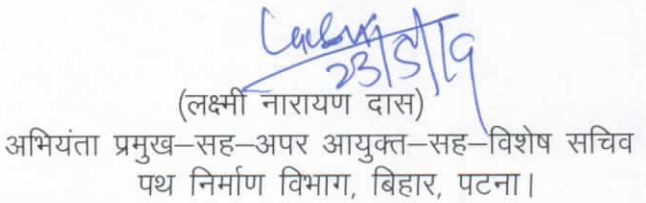 23/5/19
(लक्ष्मी नारायण दास)
अभियंता प्रमुख–सह–अपर आयुक्त–सह–विशेष सचिव
पथ निर्माण विभाग, बिहार, पटना।